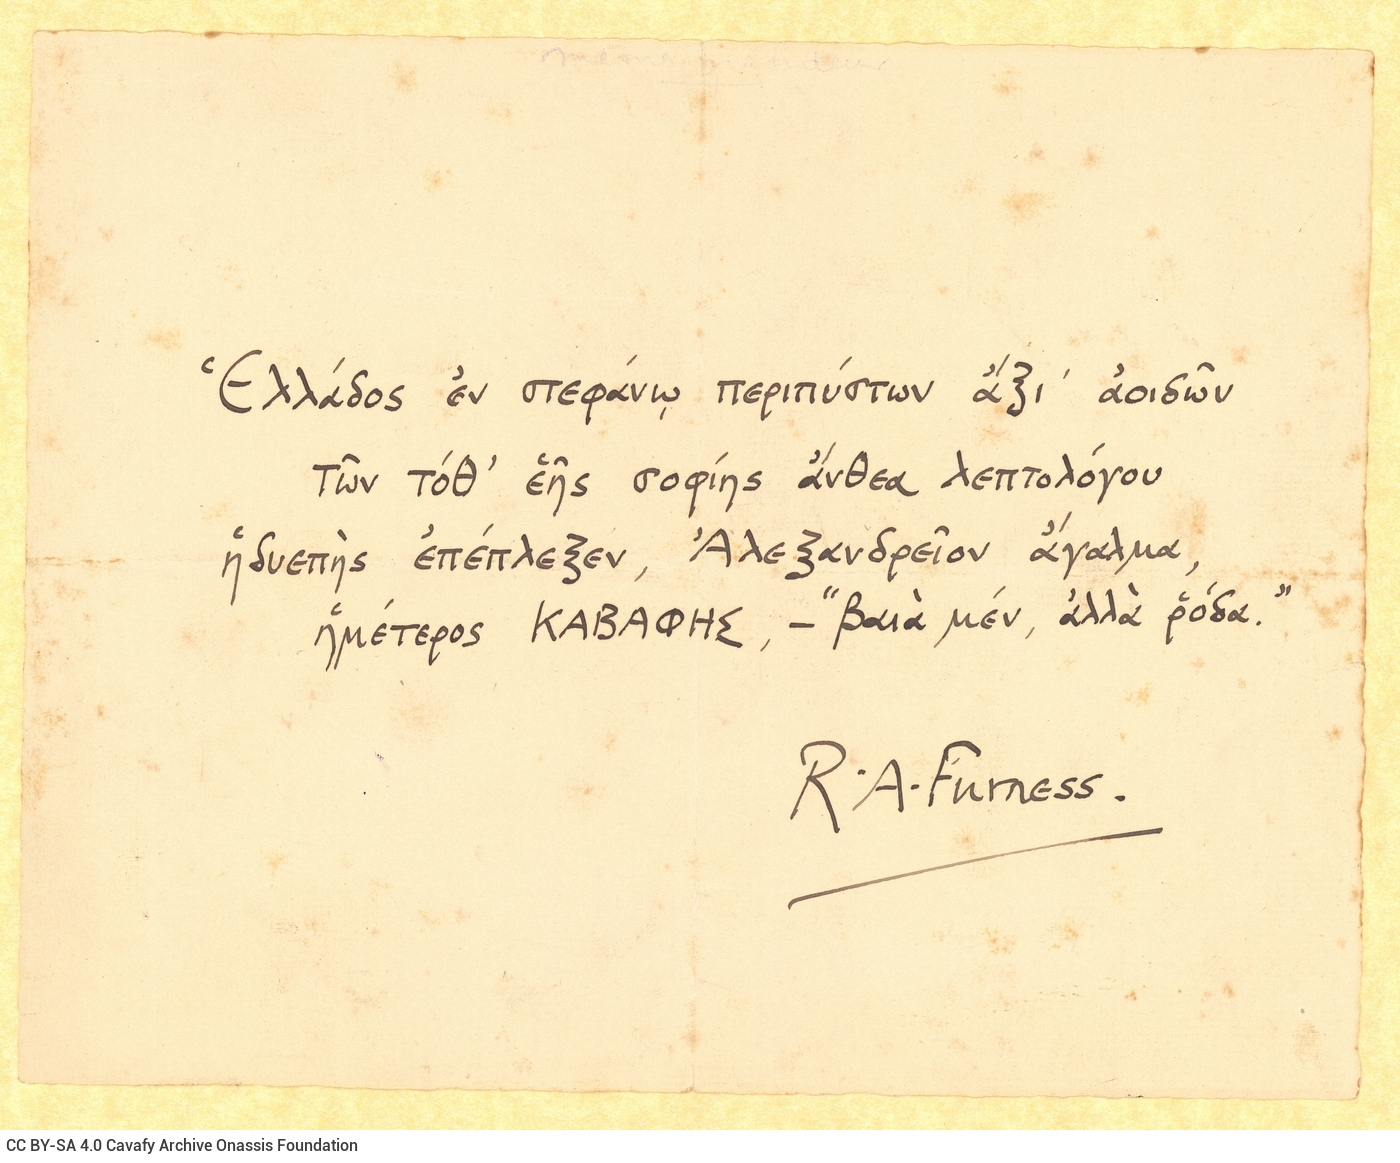 Ἑλλάδος ἐν στεφάνῳ περιπύστων ἄξι' ἀοιδῶν
τῶν τόθ' ἑῆς σοφίης ἄνθεα λεπτολόγου
ἡδυεπὴς ἐπέπλεξεν, Ἀλεξανδρεῖον ἄγαλμα,
ἡμέτερος ΚΑΒΑΦΗΣ, – "βαιὰ μέν, ἀλλὰ ῥόδα."
R. A. Furness.
CC BY-SA 4.0 Cavafy Archive Onassis Foundation